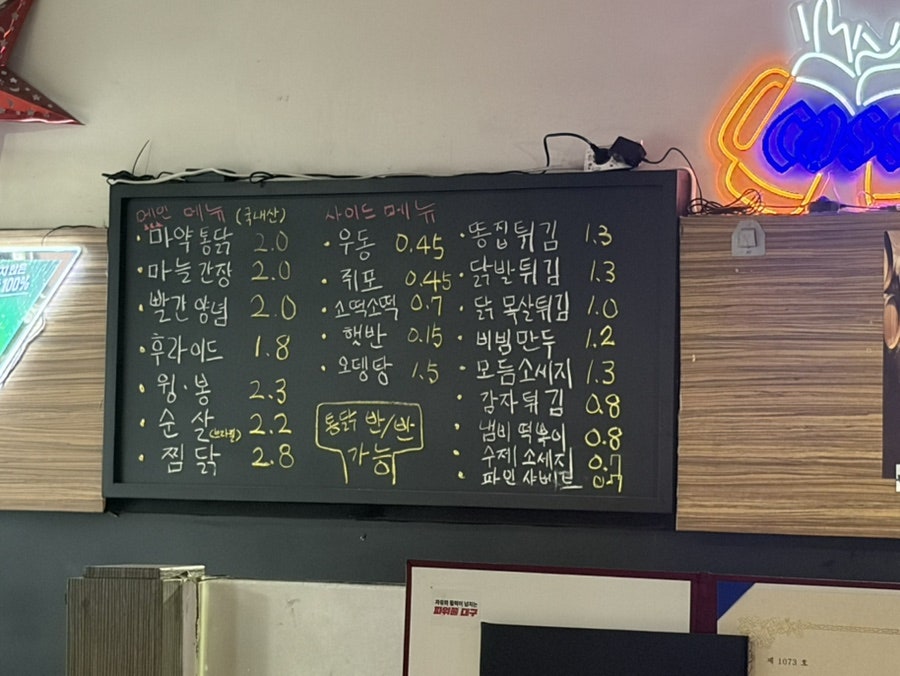 메인 메뉴 (국내산)
· 마약통닭 2.0
· 마늘간장 2.0
· 빨간양념 2.0
· 후라이드 1.8
· 윙·봉 2.3
· 순살 2.2
· 찜닭 2.8
사이드 메뉴
· 우동 0.45
· 쥐포 0.45
· 소떡소떡 0.7
· 햇반 0.15
· 오뎅탕 1.5
통닭 반/반
가능
· 똥집튀김 1.3
· 닭발튀김 1.3
· 닭목살튀김 1.0
· 비빔만두 1.2
· 모듬소세지 1.3
· 감자튀김 0.8
· 냄비떡볶이 0.8
· 수제소세지 0.7
· 파인샤베트 0.7
100%
자유와 활력이 넘치는
파워풀 대구
제 1073 호